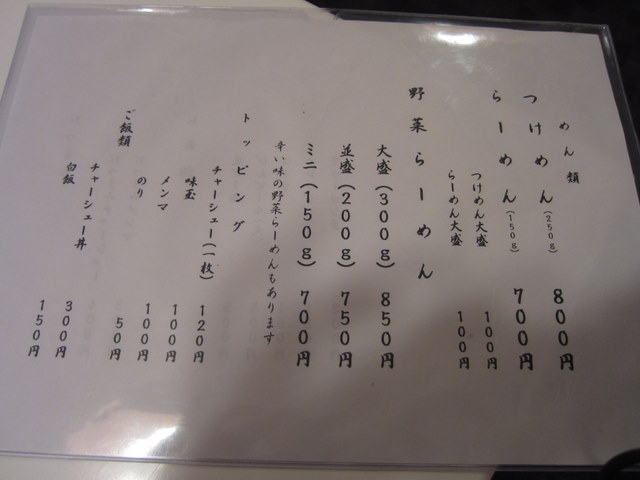 めん類
つけめん(250g) 800円
らーめん(150g) 700円
つけめん大盛 100円
らーめん大盛 100円
野菜らーめん
大盛(300g) 850円
並盛(200g) 750円
ミニ(150g) 700円
辛い味の野菜らーめんもあります
トッピング
チャーシュー(一枚) 120円
味玉 100円
メンマ 100円
のり 50円
ご飯類
チャーシュー丼 300円
白飯 150円